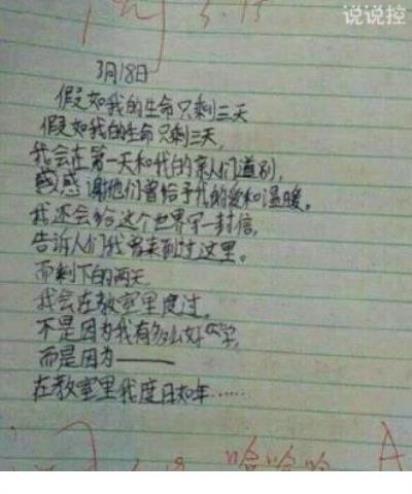 说说控
3.15
3月18日
假如我的生命只剩三天
假如我的生命只剩三天,
我会在第一天和我的亲人们道别,
感感谢他们曾给予我的爱和温暖。
我还会给这个世界写一封信,
告诉人们我曾来到过这里。
而剩下的两天
我会在教室里度过。
不是因为我有多么好学,
而是因为——
在教室里我度日如年……
哈哈哈 A